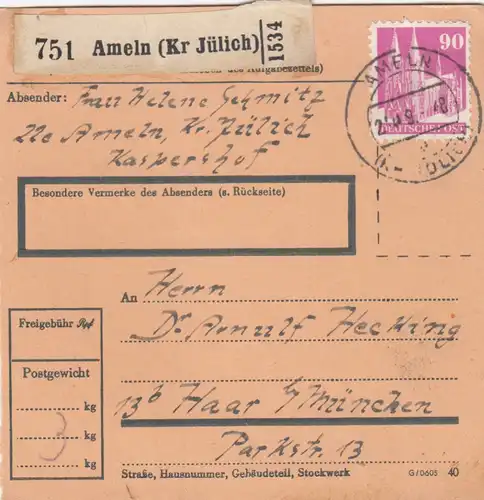 751 Ameln (Kr Jülich) 1534
90
DEUTSCHE POST
AMELN
Absender: Frau Helene Schmitz
22c Ameln, Kr. Jülich
Kaspershof
Besondere Vermerke des Absenders (s. Rückseite)
An Herrn
Dr Arnulf Hecking
13b Haar b/München
Parkstr. 13
Straße, Hausnummer, Gebäudeteil, Stockwerk
G/0605 40
Freigebühr Rpf
Postgewicht
kg
3 kg
kg